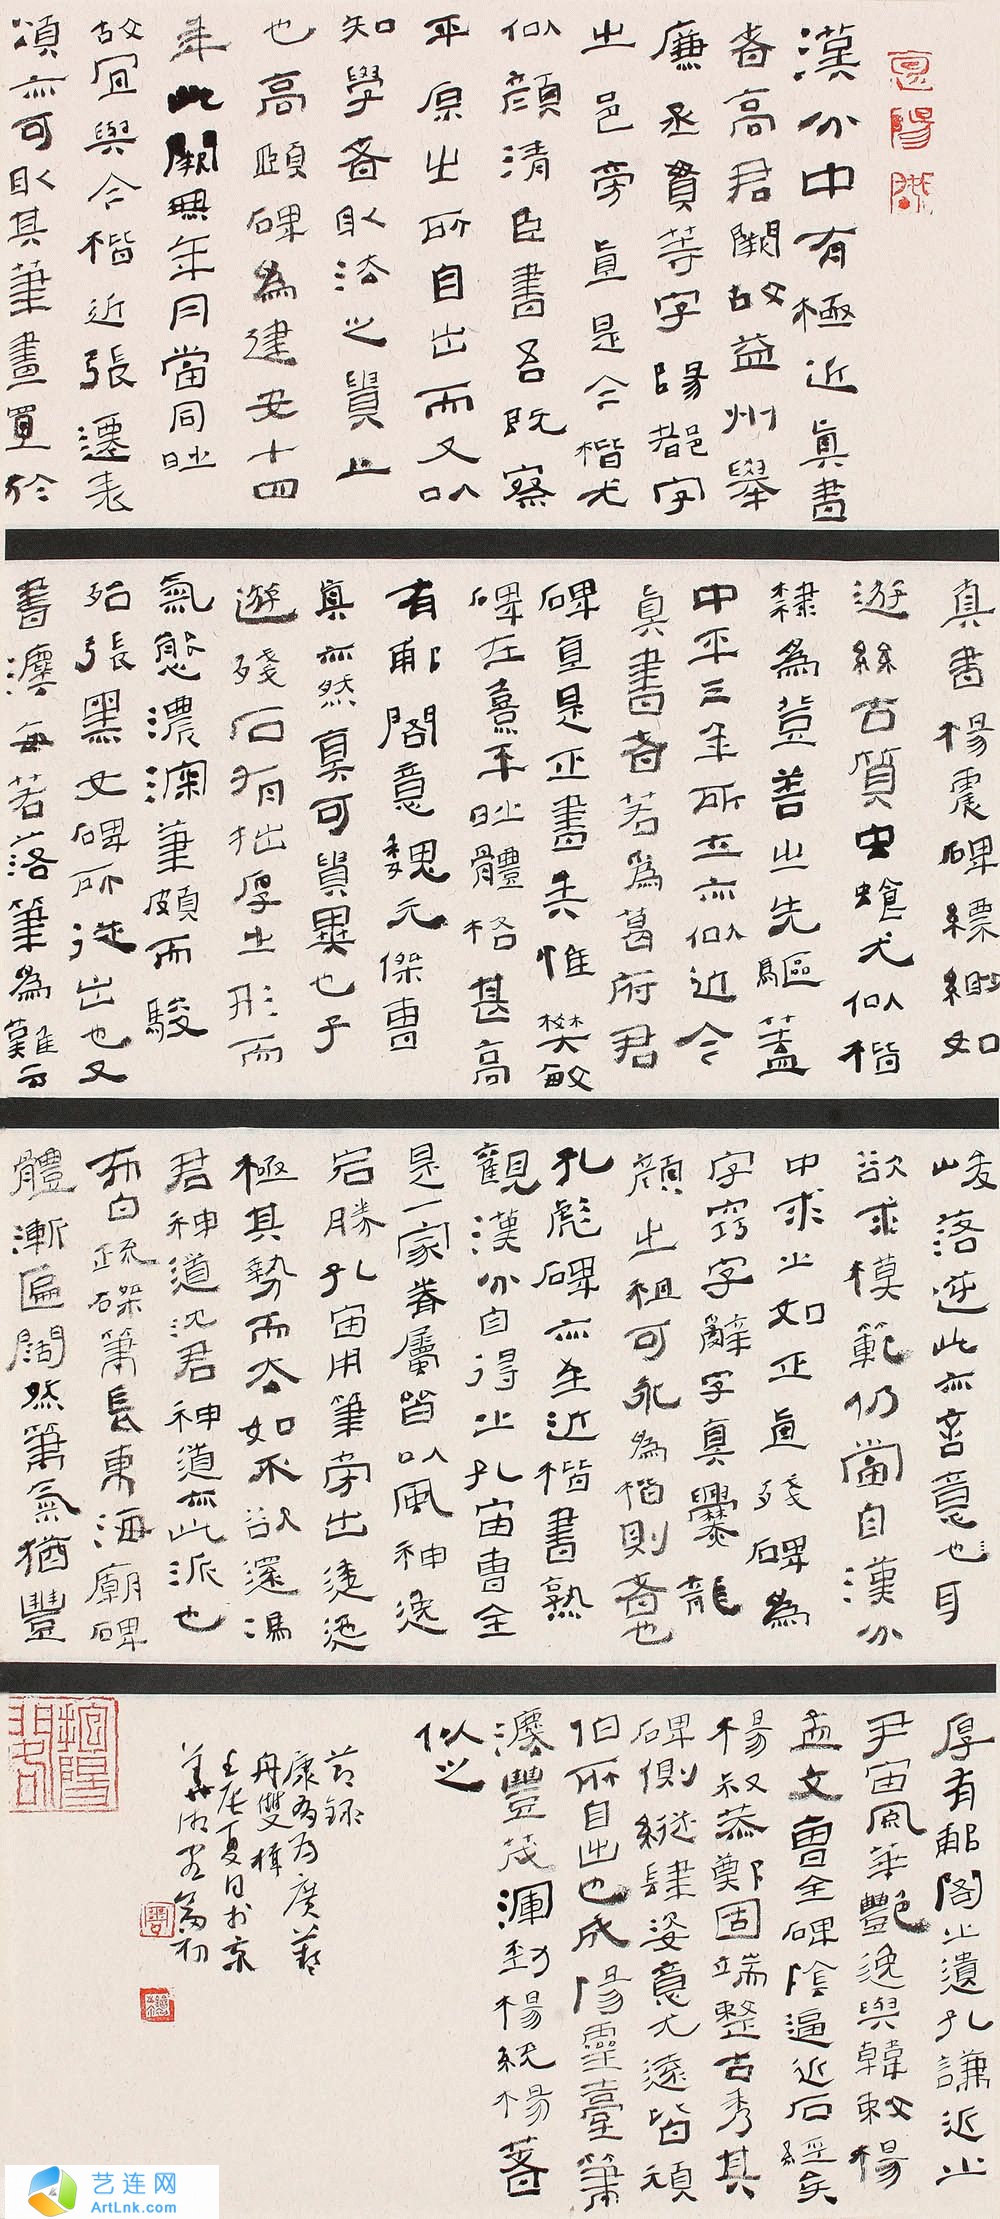 漢分中有極近真書
者高君闕故益州舉
廉丞貫等字陽都字
之邑旁直是今楷尤
似顏清臣書吾既察
平原之所自出而又以
知學者取法之貴上
也高頤碑為建安十四
年此闕無年月當同時
故宜與今楷近張遷表
頌亦可取其筆畫置於
真書楊震碑縹緲如
遊絲古質蟲蝕尤似楷
隸為登善之先驅蓋
中平三年所立亦似近今
真書者若為葛府君
碑直是正書矣惟樊敏
碑在熹平時體格甚高
有郙閣意魏元傑曹
真亦然真可貴異也子
游殘石有拙厚之形而
氣態濃深筆頗而駿
殆張黑女碑所從出也又
書法每苦落筆為難云
峻落逆此亦言意也耳
欲求模範仍當自漢分
中求之如正直殘碑為
字竅字辭字真爨龍
顏之祖可永為楷則者也
孔彪碑亦至近楷書熟
觀漢分自得之孔宙曹全
是一家眷屬皆以風神逸
宕勝孔宙用筆旁出逶迤
極其勢而去如不欲還馮
君神道沈君神道亦此派也
布白疏磔筆長東海廟碑
體漸匾闊然筆氣猶豐
厚有郙閣之遺孔謙近之
尹宙風華艷逸與韓敕楊
孟文曹全碑陰逼近石經矣
楊叔恭鄭固端整古秀其
碑側縱肆姿意尤遠皆頑
伯所自出也成陽靈臺筆
法豐茂渾勁楊統楊著
似之
節錄
康有為廣藝
舟雙楫
壬辰夏日於京
艺连网
ArtLnk.com